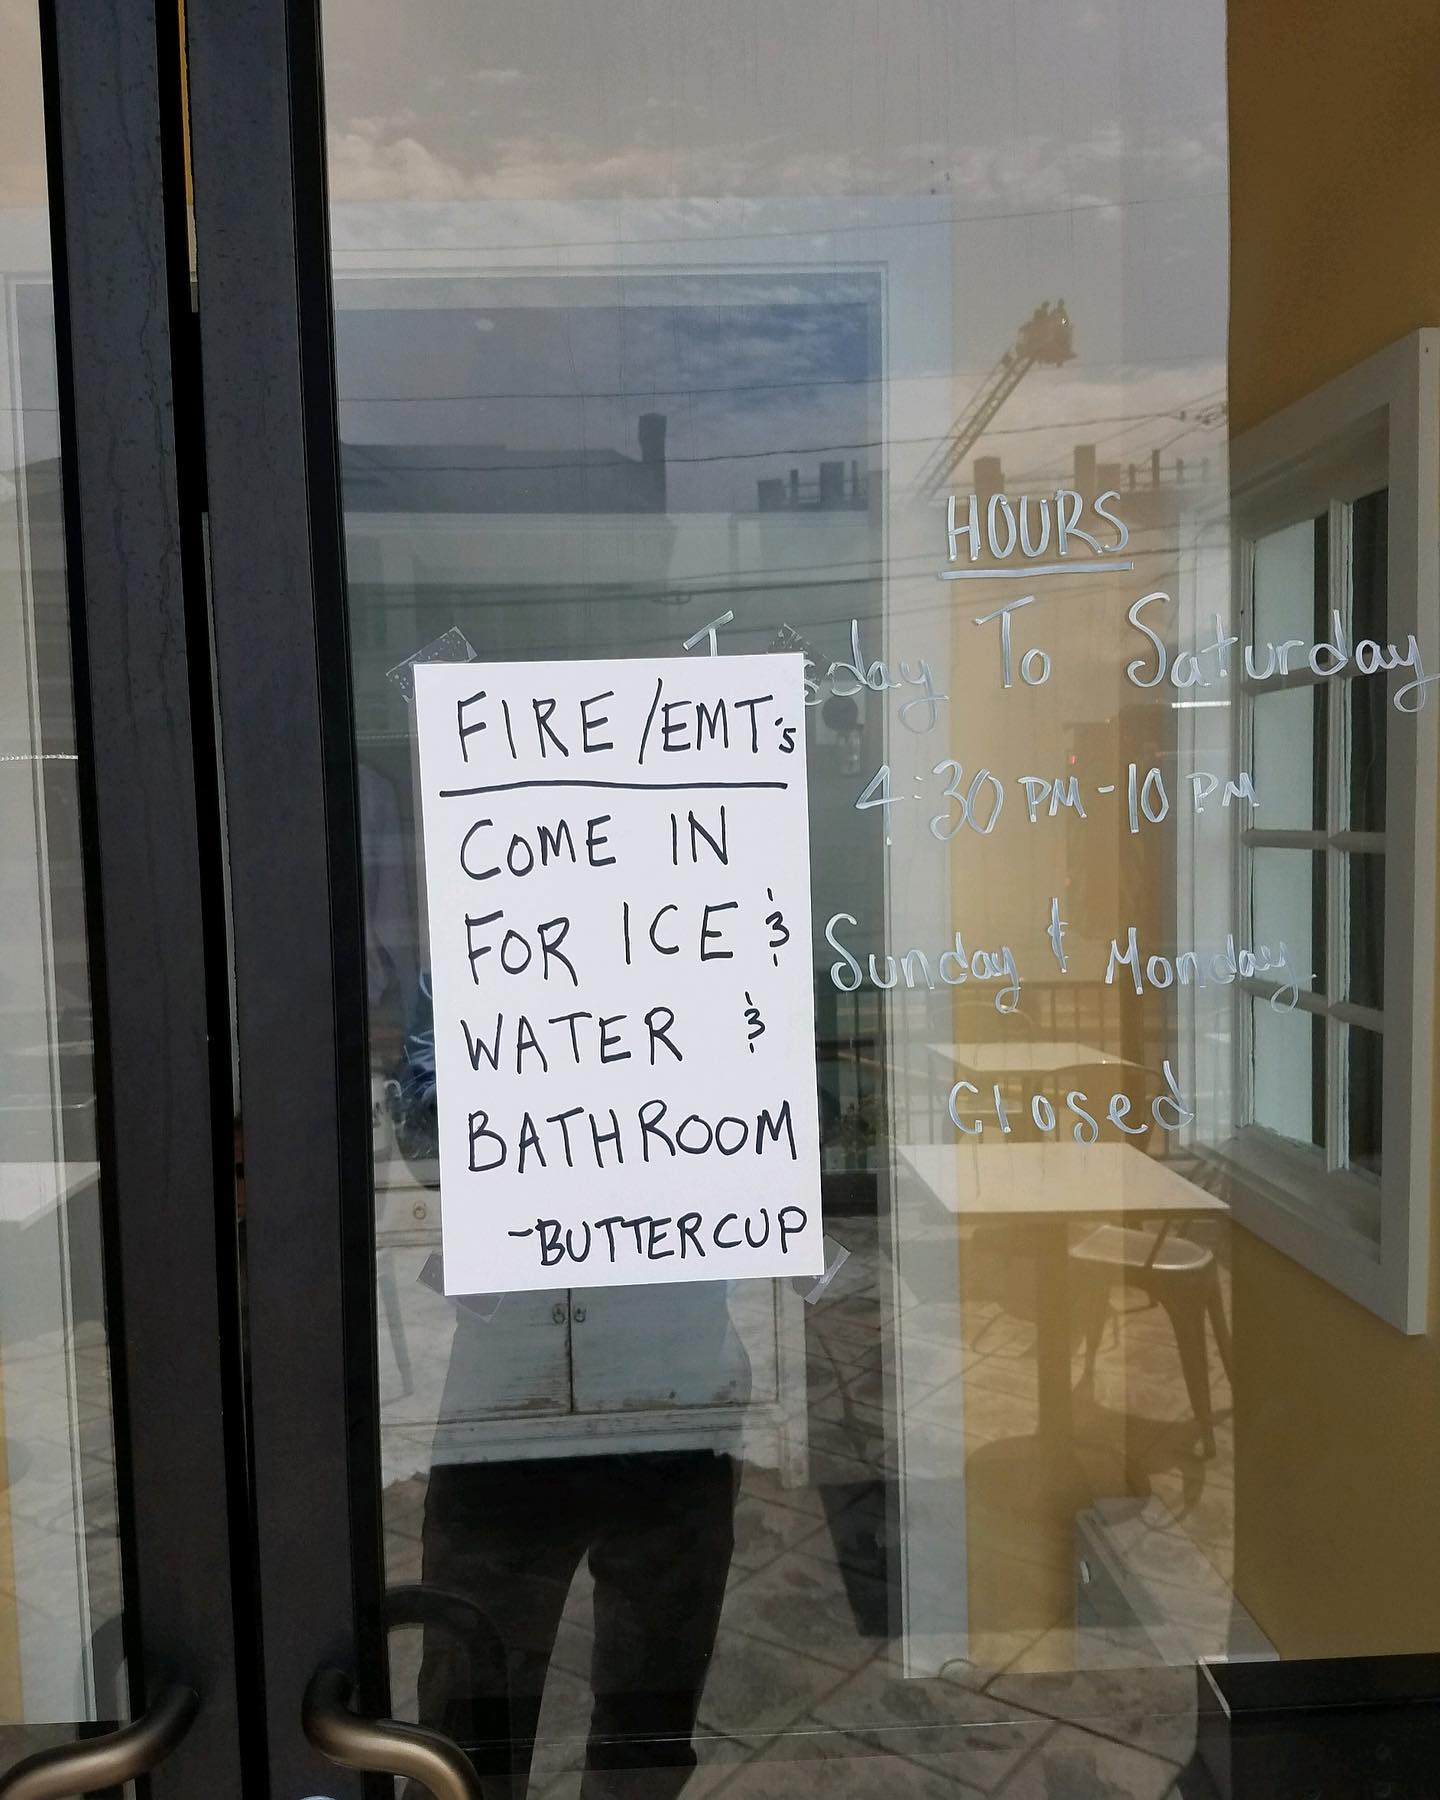 FIRE/EMT's
COME IN
FOR ICE &
WATER &
BATHROOM
-BUTTERCUP
HOURS
To Saturday
4:30 PM - 10 PM
Sunday & Monday
Closed